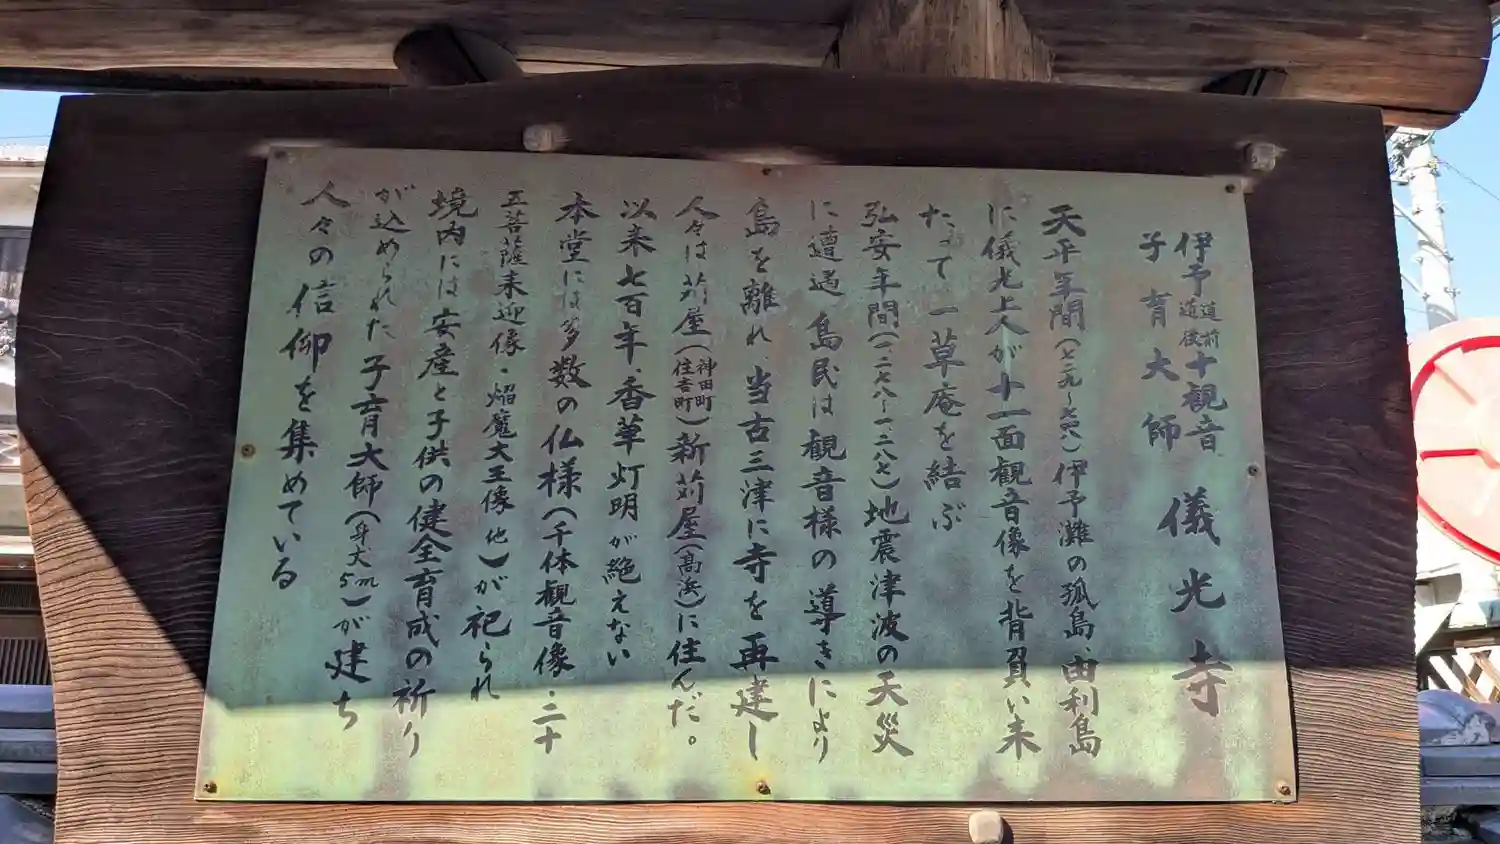 伊予道前道後十観音
子育大師
儀光寺
天平年間(七二九〜七四八)伊予灘の孤島、由利島
に儀光上人が十一面観音像を背負い来
たって一草庵を結ぶ
弘安年間(一二七八〜一二八七)地震津波の天災
に遭遇島民は観音様の導きにより
島を離れ、当古三津に寺を再建し
人々は苅屋(神田町住吉町)新苅屋(高浜)に住んだ。
以来七百年、香華灯明が絶えない
本堂には多数の仏様(千体観音像・二十
五菩薩来迎像・焔魔大王像他)が祀られ
境内には安産と子供の健全育成の祈り
が込められた子育大師(身丈5m)が建ち
人々の信仰を集めている